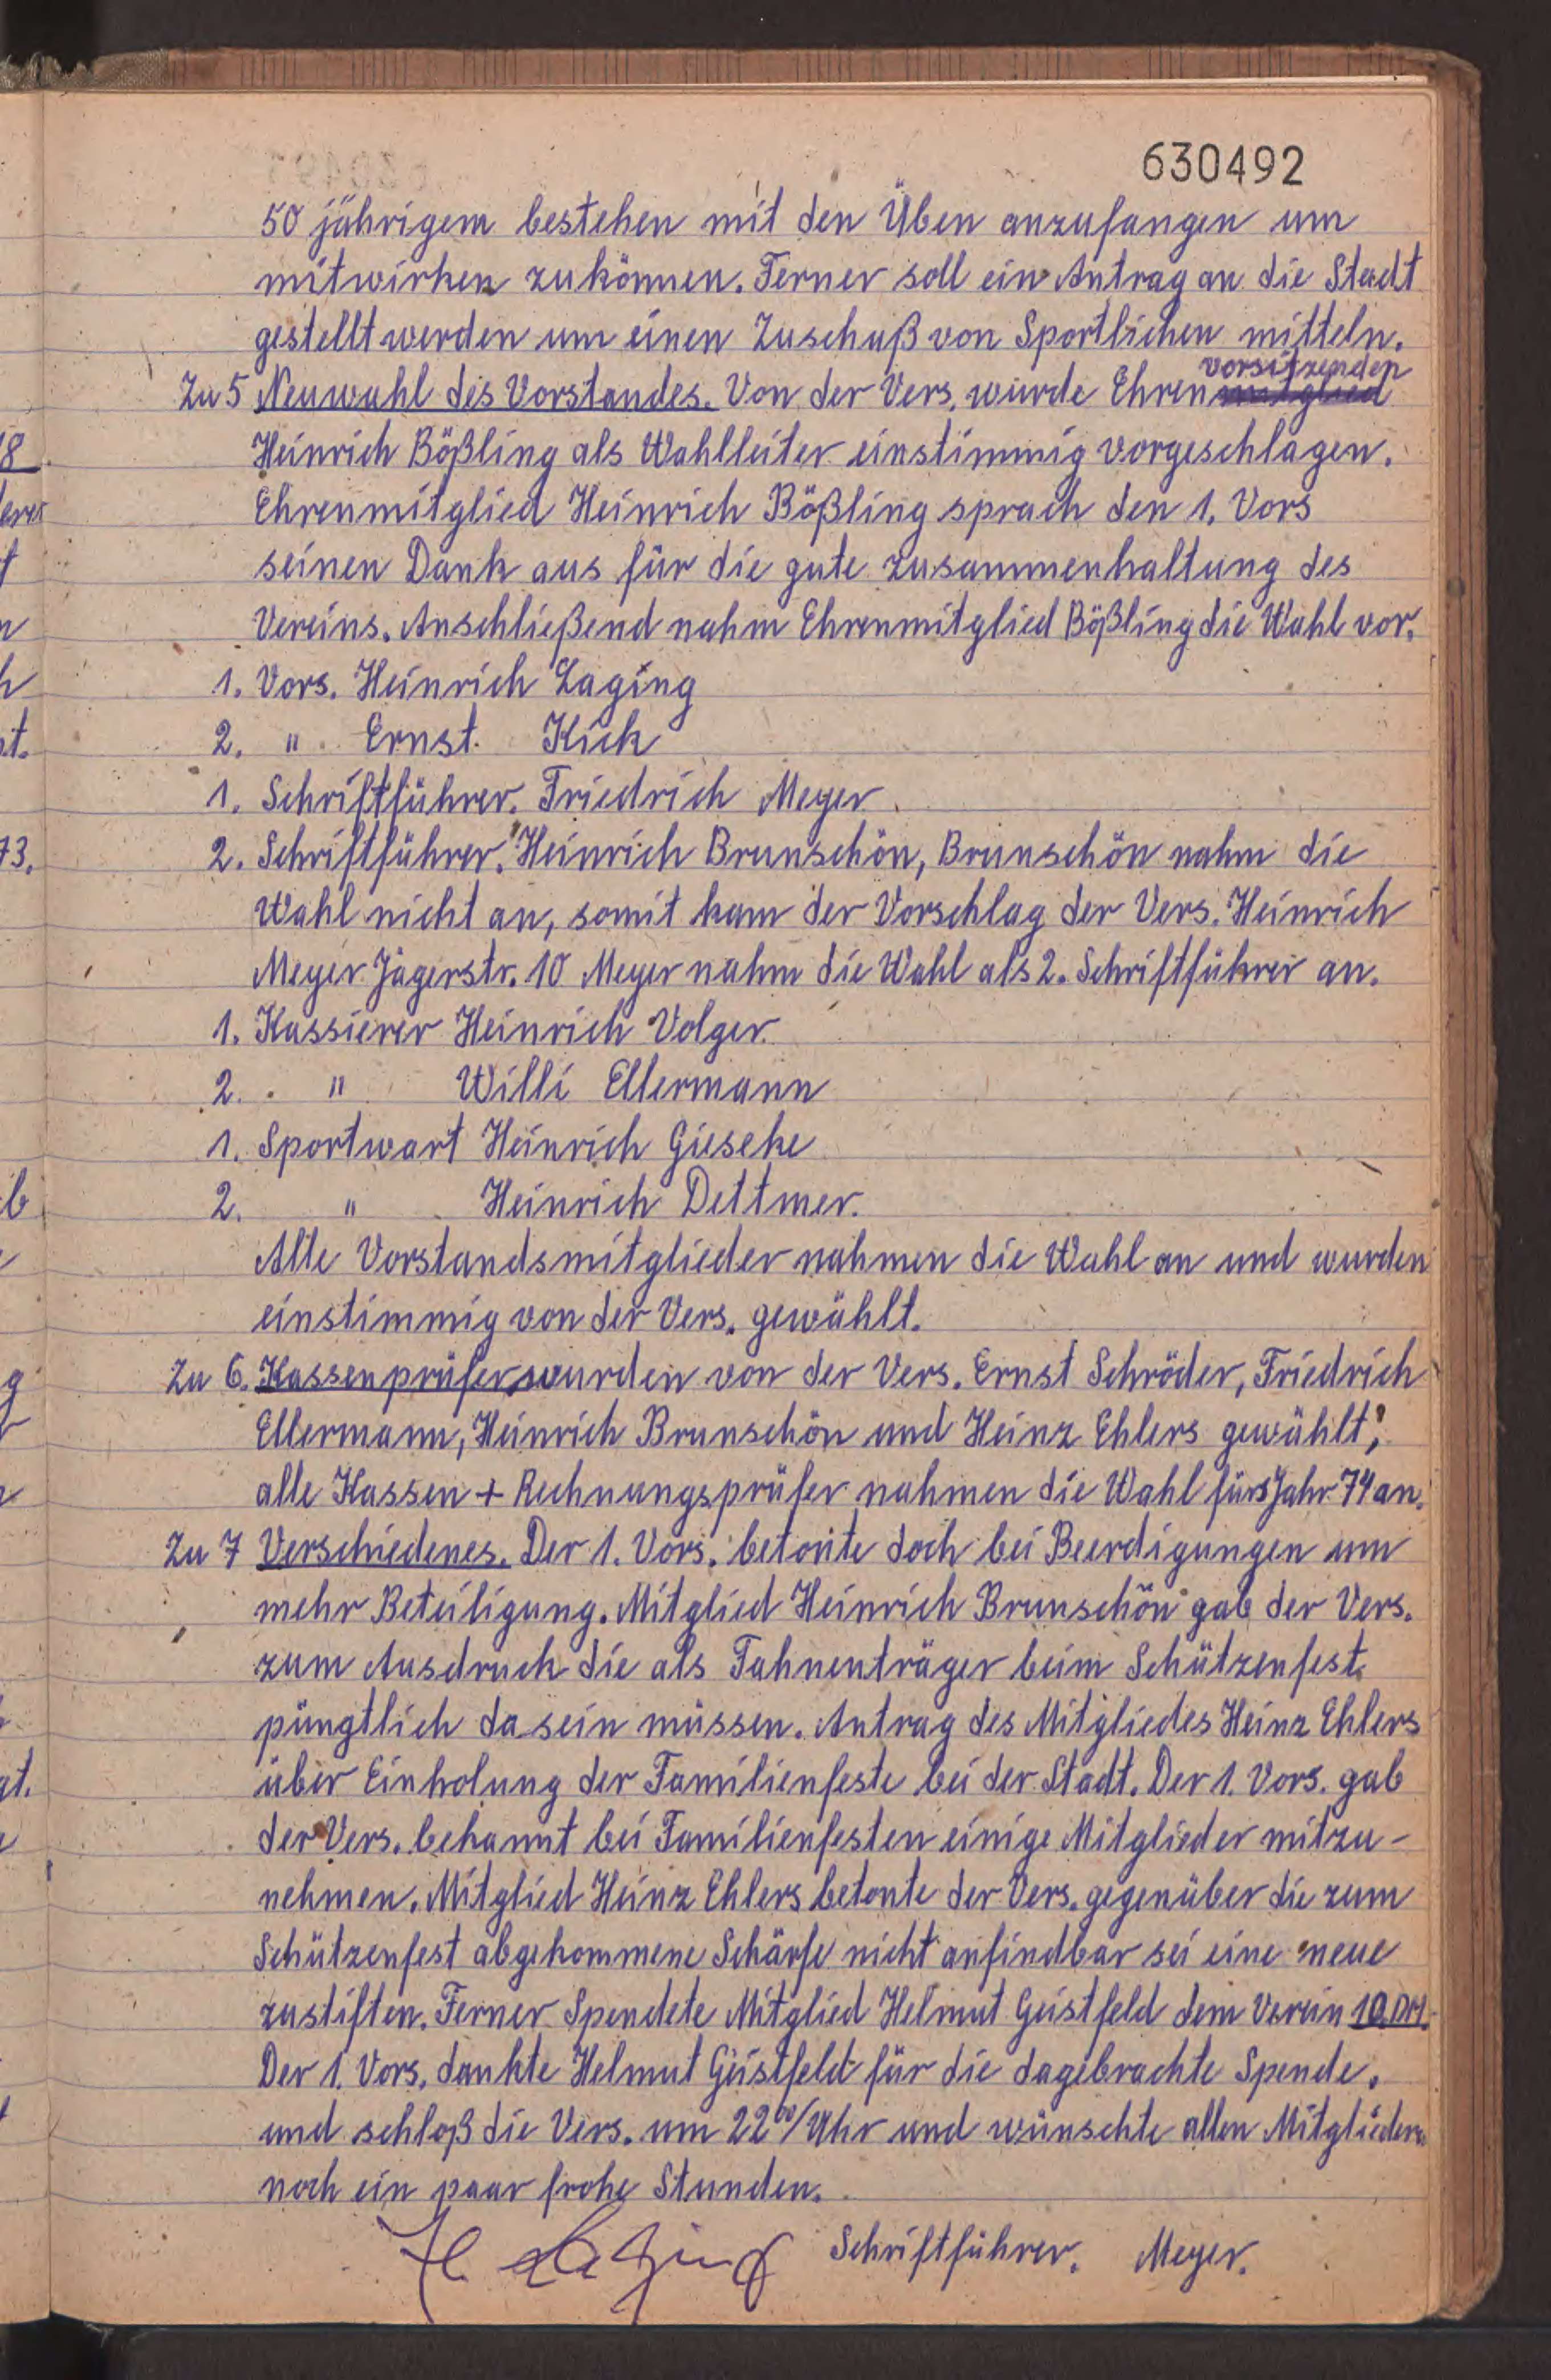 630492
50 jährigem bestehen mit den Üben anzufangen um
mitwirken zukönnen. Ferner soll ein Antrag an die Stadt
gestellt werden um einen Zuschuß von Sportlichen mitteln.
vorsitzenden
Zu 5 Neuwahl des Vorstandes. Von der Vers. wurde Ehrenmitglied
Heinrich Bößling als Wahlleiter einstimmig vorgeschlagen.
Ehrenmitglied Heinrich Bößling sprach den 1. Vors
seinen Dank aus für die gute zusammenhaltung des
Vereins. Anschließend nahm Ehrenmitglied Bößling die Wahl vor.
1. Vors. Heinrich Laging
2. " Ernst Kick
1. Schriftführer. Friedrich Meyer
2. Schriftführer. Heinrich Brunschön, Brunschön nahm die
Wahl nicht an, somit kam der Vorschlag der Vers. Heinrich
Meyer Jägerstr. 10 Meyer nahm die Wahl als 2. Schriftführer an.
1. Kassierer Heinrich Volger
2. " Willi Ellermann
1. Sportwart Heinrich Gieseke
2. " Heinrich Dettmer.
Alle Vorstandsmitglieder nahmen die Wahl an und wurden
einstimmig von der Vers. gewählt.
Zu 6. Kassenprüfer wurden von der Vers. Ernst Schröder, Friedrich
Ellermann, Heinrich Brunschön und Heinz Ehlers gewählt,
alle Kassen + Rechnungsprüfer nahmen die Wahl fürs Jahr 74 an.
Zu 7 Verschiedenes. Der 1. Vors. betonte doch bei Beerdigungen um
mehr Beteiligung. Mitglied Heinrich Brunschön gab der Vers.
zum Ausdruck die als Fahnenträger beim Schützenfest
püngtlich da sein müssen. Antrag des Mitgliedes Heinz Ehlers
über Einholung der Familienfeste bei der Stadt. Der 1. Vors. gab
der Vers. bekannt bei Familienfesten einige Mitglieder mitzu-
nehmen. Mitglied Heinz Ehlers betonte der Vers. gegenüber die zum
Schützenfest abgekommene Schärfe nicht anfindbar sei eine neue
zustiften. Ferner Spendete Mitglied Helmut Geistfeld dem Verein 10.DM.
Der 1. Vors. dankte Helmut Geistfeld für die dagebrachte Spende.
und schloß die Vers. um 22⁰⁰/Uhr und wünschte allen Mitgliedern
noch ein paar frohe Stunden.
H Laging Schriftführer. Meyer.